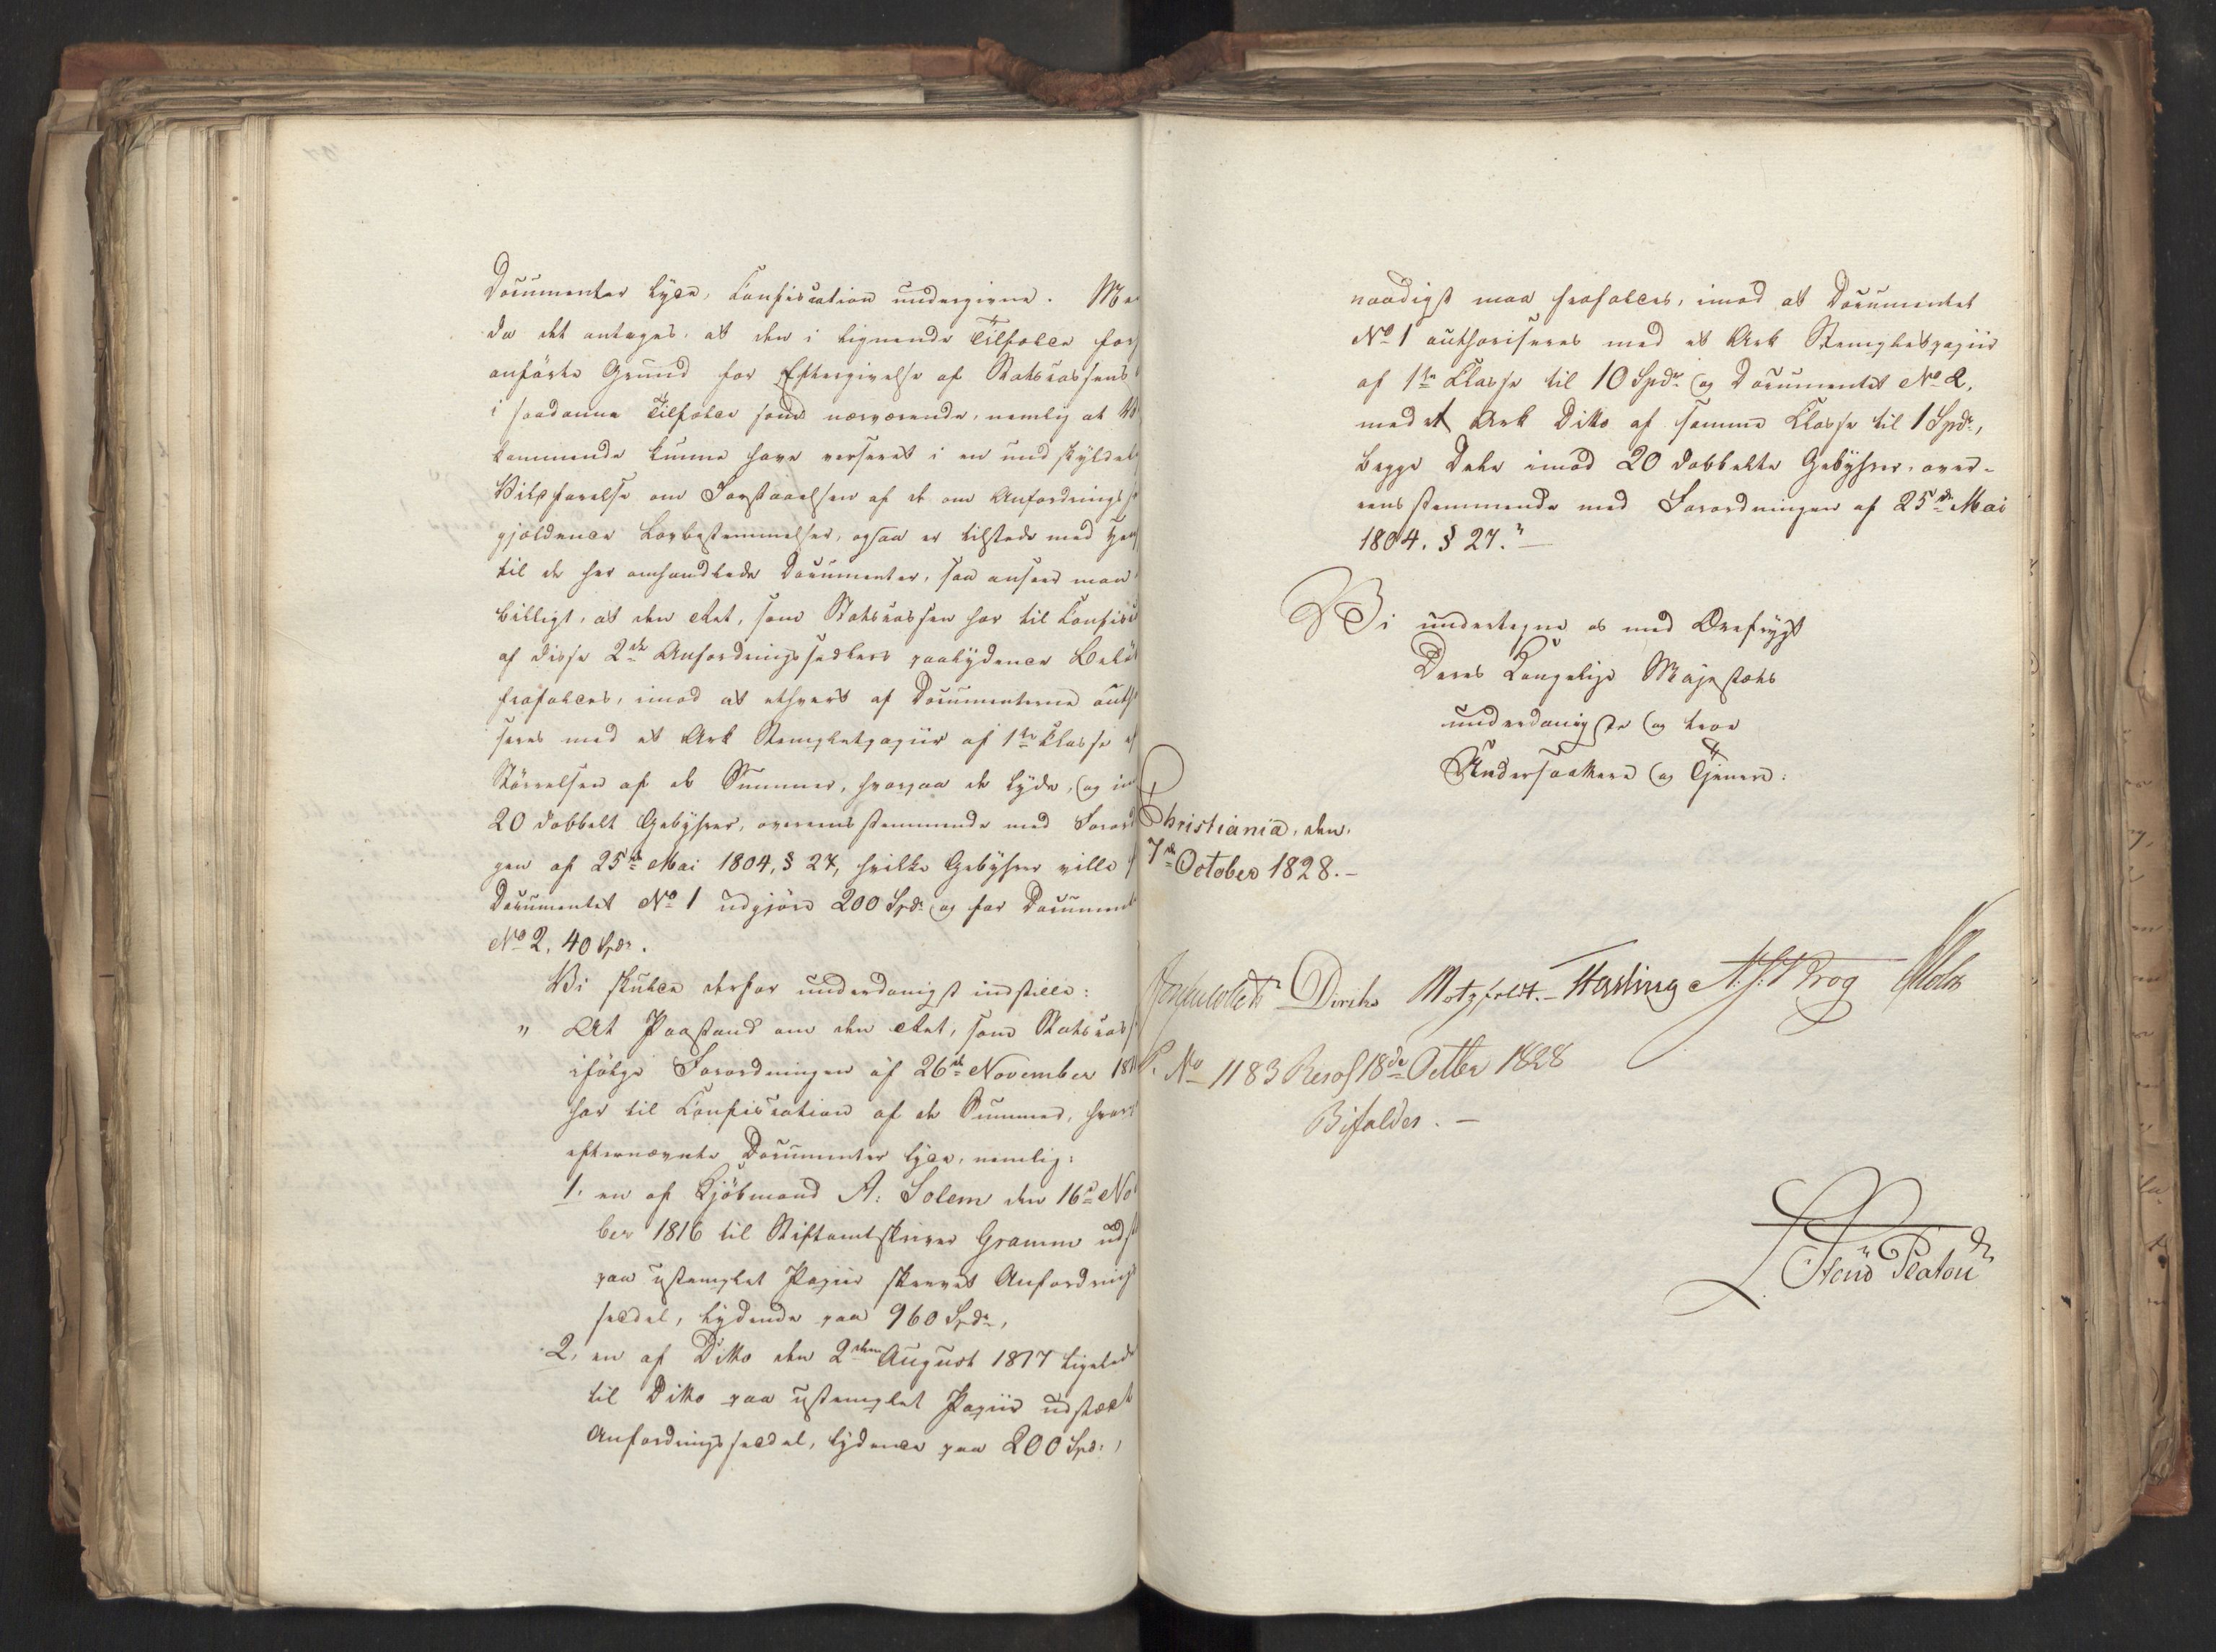 Documenter lyde, Confiscation undergivne. Me
da det antages, at den i lignende Tilfælde for
anførte Grund for Eftergivelse af Statskassens
i saadanne Tilfælde som nærværende, nemlig at V
kommende kunne have verseret i en undskyldel
Vildfarelse om Forstaaelsen af de om Anfordrings
gjældende Lovbestemmelser, ogsaa er tilstede med Hen
til de her omhandlede Documenter, saa anseer man
billigt, at den Ret, som Statskassen har til Confisc
af disse 2de Anfordringssedlers paalydende Belø
frafaldes, imod at ethvert af Documenterne auth
seres med et Ark Stemplet papiir af 1ste Classe ef
Størrelsen af de Summer, hvorpaa de lyde, og im
20 dobbelt Gebyhrer, overeensstemmende med Forord
gen af 25de Mai 1804, § 27, hvilke Gebyhrer ville f
Documentet No 1 udgjøre 200 Spdr og for Document
No 2, 40 Spdr.
Vi skulde derfor underdanigst indstille:
" At Paastand om den Ret, som Statskass
ifølge Forordningen af 26de November 18
har til Confiscation af de Summer, hvor
efternævnte Documenter lyde, nemlig:
1, en af Kjøbmand A: Solem den 16de No
ber 1816 til Stiftamtskriver Gramm uds
paa ustemplet Papiir skrevet Anfordrings
seddel, lydende paa 960 Spdr,
2, en af Ditto den 2den August 1817 ligeled
til Ditto paa ustemplet Papiir udstædt
Anfordringsseddel, lydende paa 200 Spdr,
naadigst maa frafaldes, imod at Documentet
No 1 authoriseres med et Ark Stemplet papiir
af 1ste Classe til 10 Spdr og Documentet No 2,
med et Ark Ditto af samme Classe til 1 Spdr,
begge Dele imod 20 dobbelte Gebyhrer, over-
eensstemmende med Forordningen af 25de Mai
1804. § 27."
Vi undertegne os med Ærefrygt
Deres Kongelige Majestæts
underdanigste og troe
Undersaatter og Tjenere:
Christiania, den
7de October 1828.
Diriks Motzfeldt. Fasting Krog Holst
P. No 1183 Resol 18de Octbr 1828
Bifaldes.